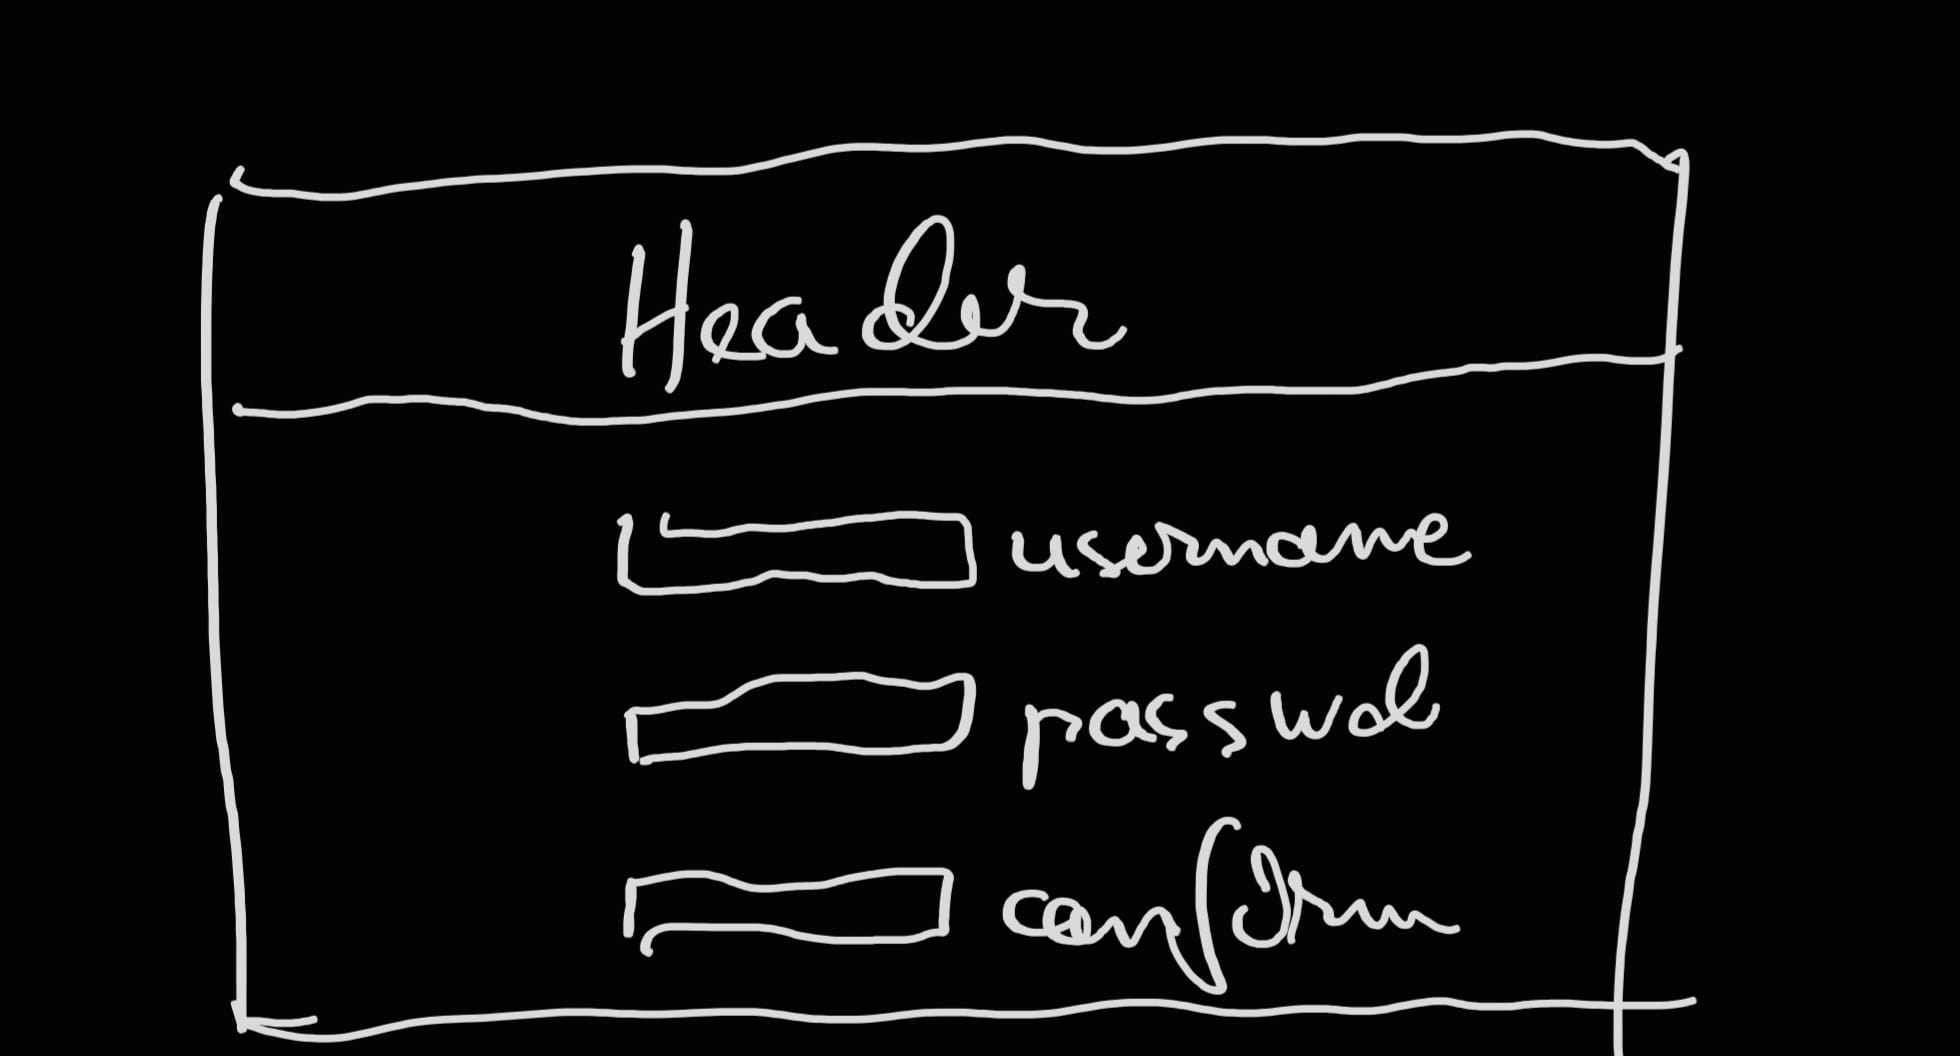 Header
username
passwd
confirm